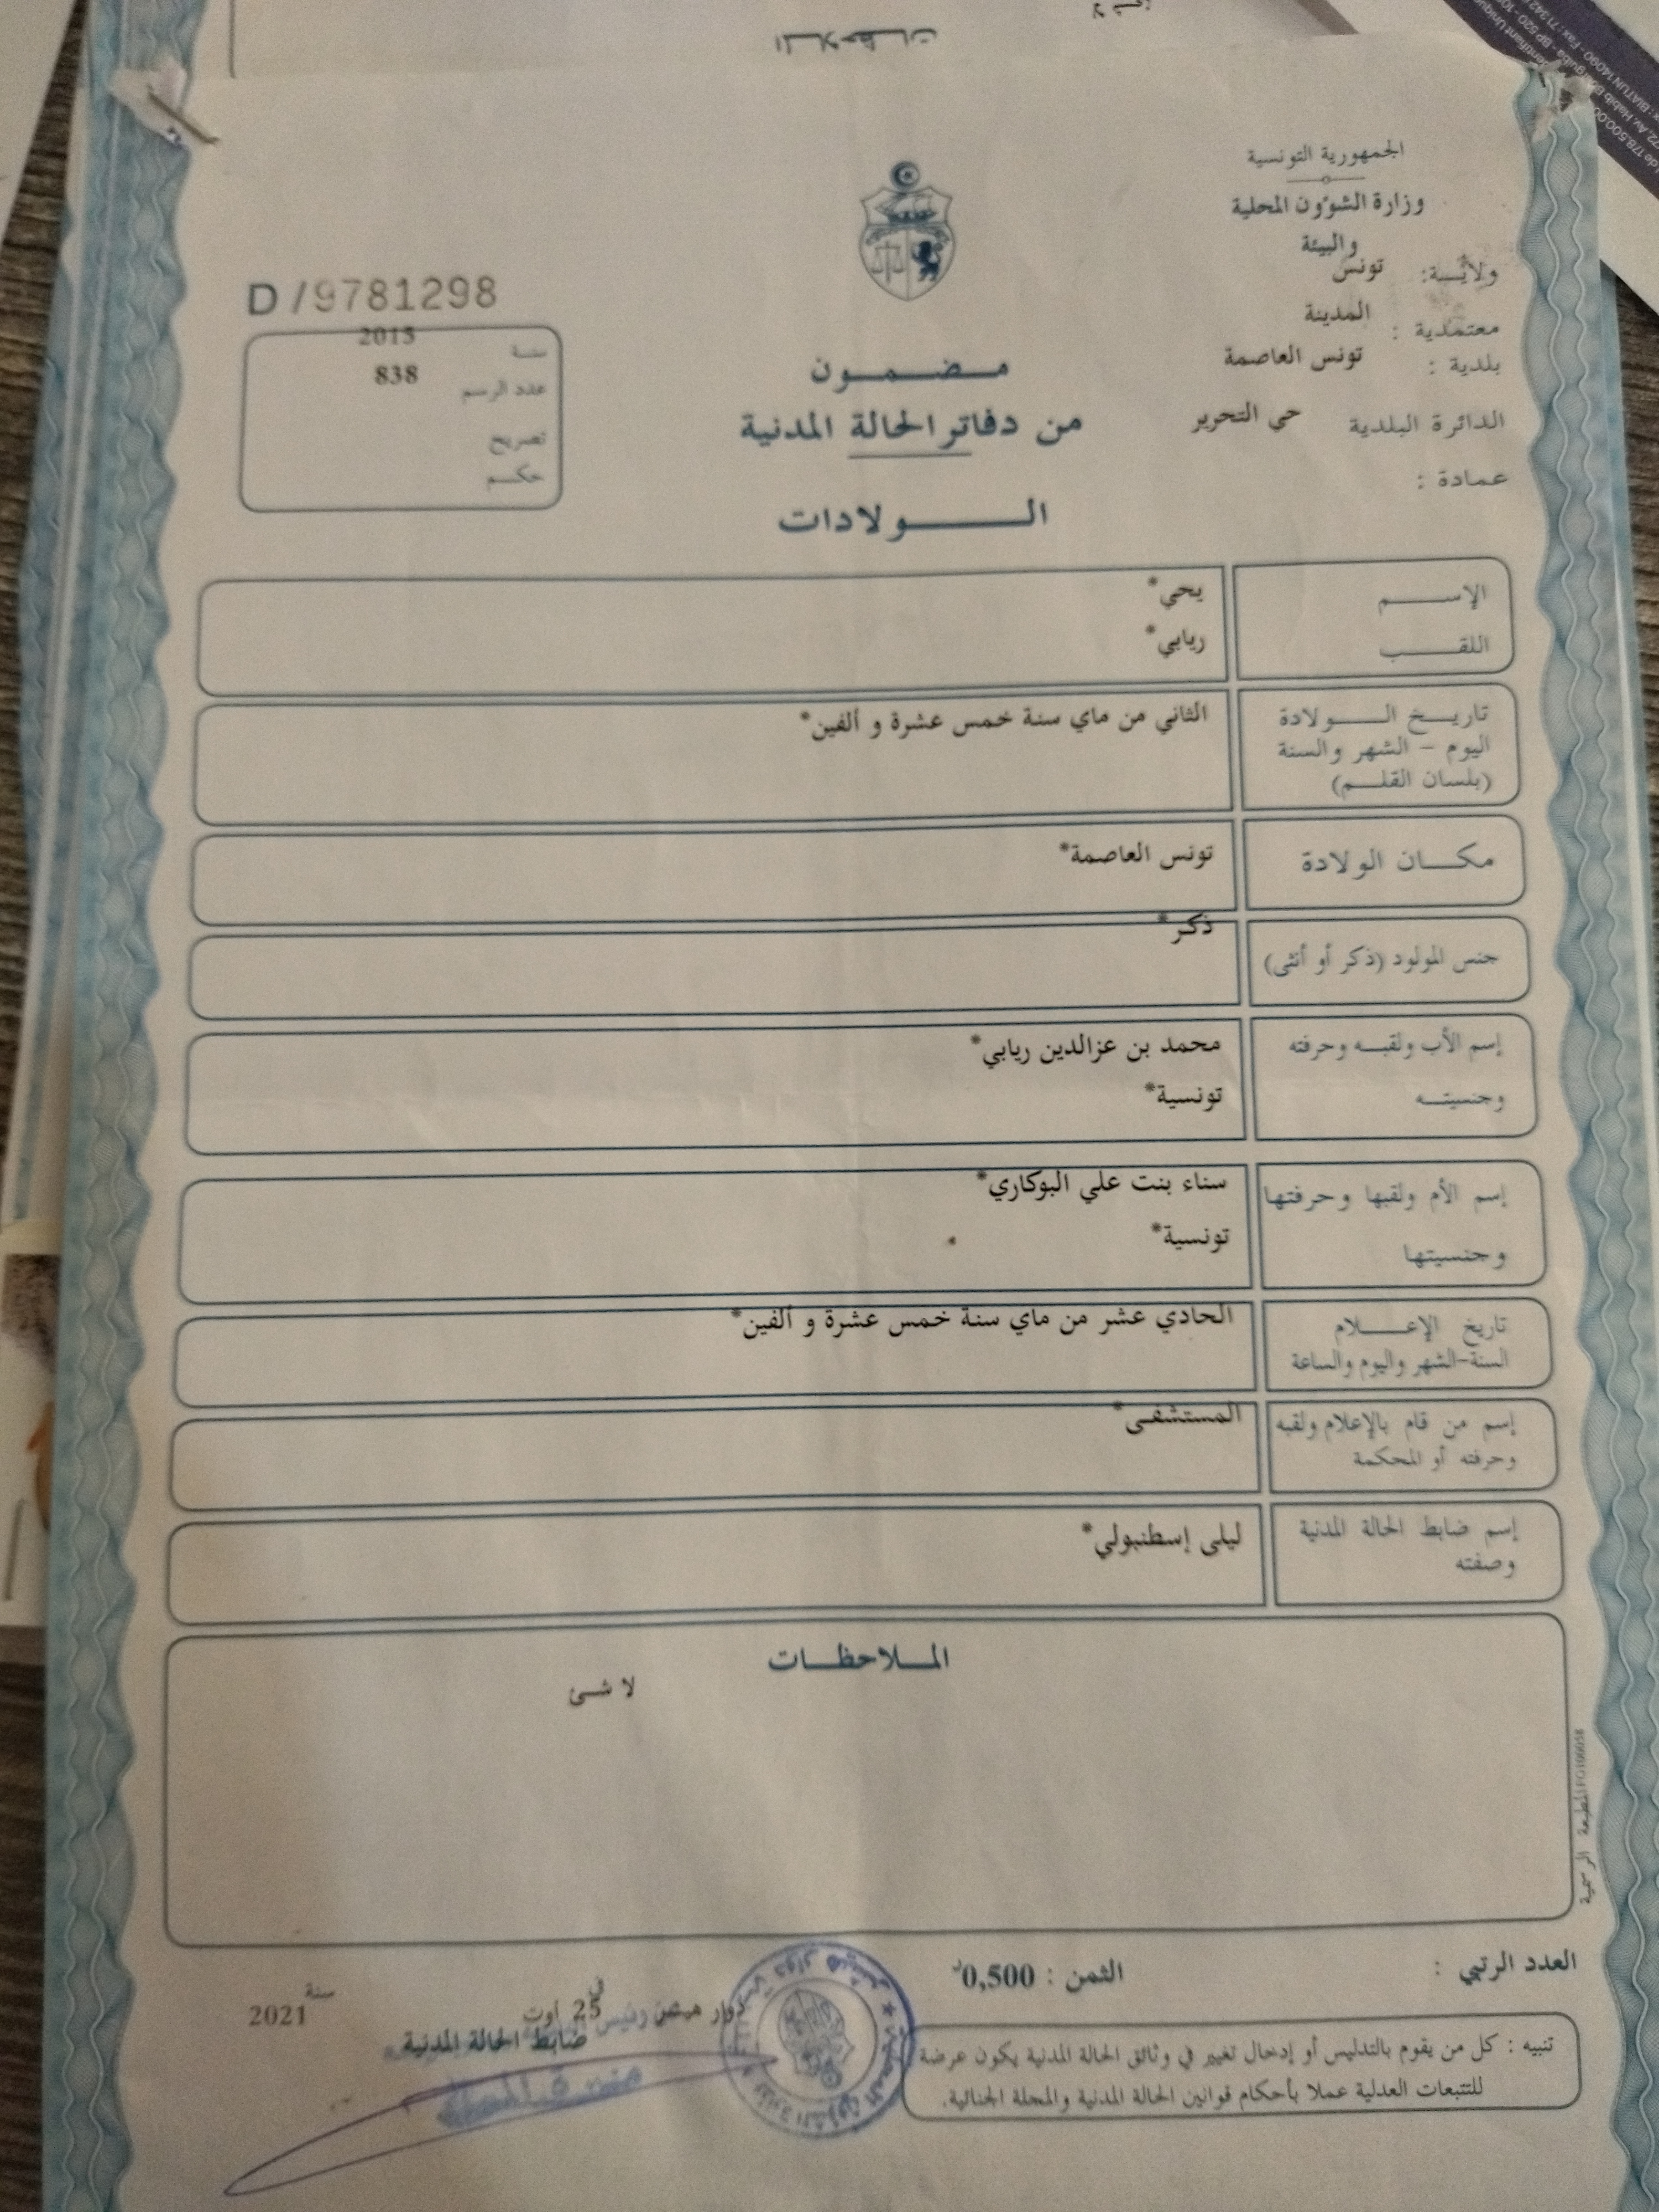 الملاحظات
الجمهورية التونسية
وزارة الشؤون المحلية
والبيئة
ولايـــة: تونس
معتمدية : المدينة
بلدية : تونس العاصمة
الدائرة البلدية حي التحرير
عمادة :
D/9781298
سنة 2015
عدد الرسم 838
تصريح
حكم
مضمون
من دفاتر الحالة المدنية
الولادات
الإسم يحي*
اللقب ريابي*
تاريخ الولادة الثاني من ماي سنة خمس عشرة و ألفين*
اليوم - الشهر والسنة
(بلسان القلم)
مكان الولادة تونس العاصمة*
جنس المولود (ذكر أو أنثى) ذكر*
إسم الأب ولقبه وحرفته محمد بن عزالدين ريابي*
وجنسيته تونسية*
إسم الأم ولقبها وحرفتها سناء بنت علي البوكاري*
وجنسيتها تونسية*
تاريخ الإعلام الحادي عشر من ماي سنة خمس عشرة و ألفين*
السنة-الشهر واليوم والساعة
إسم من قام بالإعلام ولقبه المستشفى*
وحرفته أو المحكمة
إسم ضابط الحالة المدنية ليلى إسطنبولي*
وصفته
الملاحظات
لا شئ
المطبعة الرسمية
العدد الرتبي :
الثمن : 0,500د
دوار هيشر في 25 أوت سنة 2021
ضابط الحالة المدنية
تنبيه : كل من يقوم بالتدليس أو إدخال تغيير في وثائق الحالة المدنية يكون عرضة
للتتبعات العدلية عملا بأحكام قوانين الحالة المدنية والمجلة الجنائية.